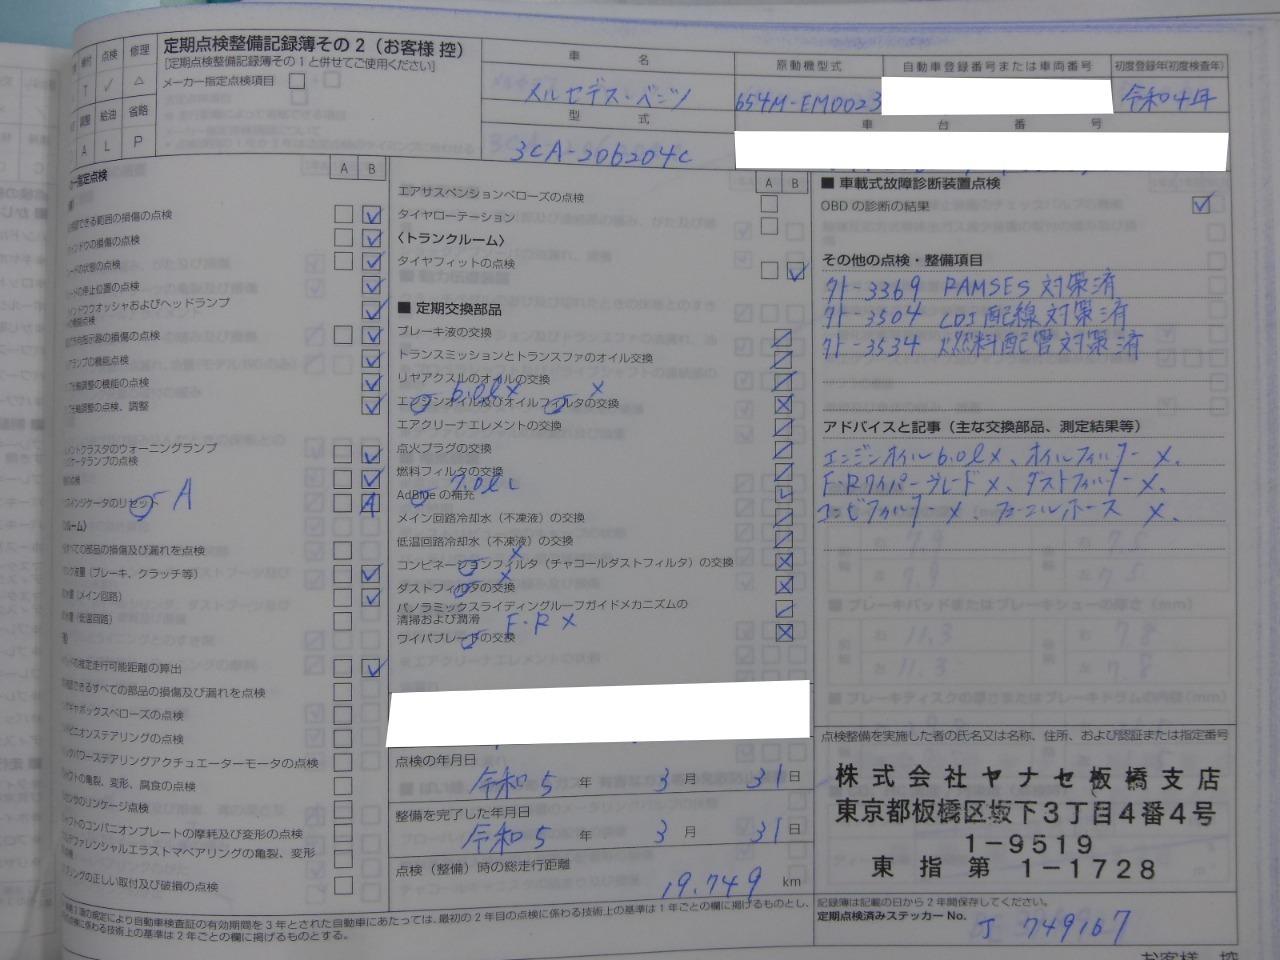 取付 点検 修理
T ✓ △
調整 給油 省略
A L P
定期点検整備記録簿その2(お客様 控)
[定期点検整備記録簿その1と併せてご使用ください]
メーカー指定点検項目
車 名
メルセデス・ベンツ
型 式
3CA-206204C
原動機型式
654M-EM0023
自動車登録番号または車両番号
初度登録年(初度検査年)
令和04年
車 台 番 号
カー指定点検
A B
できる範囲の損傷の点検
ィンドウの損傷の点検
ードの状態の点検
ードの停止位置の点検
ンドウウオッシャおよびヘッドランプ
の機能点検
指示器の損傷の点検
ランプの機能点検
軸調整の機能の点検
軸調整の点検、調整
メントクラスタのウォーニングランプ
ケータランプの点検
の点検
スインジケータのリセット A
ルーム〉
すべての部品の損傷及び漏れを点検
ク液量(ブレーキ、クラッチ等)
水量(メイン回路)
水量(低温回路)
ドの推定走行可能距離の算出
認できるすべての部品の損傷及び漏れを点検
ギヤボックスベローズの点検
ピニオンステアリングの点検
ックパワーステアリングアクチュエーターモータの点検
フトの亀裂、変形、腐食の点検
センサのリンケージ点検
フトのコンパニオンプレートの摩耗及び変形の点検
ファレンシャルエラストマベアリングの亀裂、変形
の点検
プリングの正しい取付及び破損の点検
A B
エアサスペンションベローズの点検
タイヤローテーション
〈トランクルーム〉
タイヤフィットの点検
■ 定期交換部品
ブレーキ液の交換
トランスミッションとトランスファのオイル交換
リヤアクスルのオイルの交換
6.0ℓ× ×
エンジンオイル及びオイルフィルタの交換
エアクリーナエレメントの交換
点火プラグの交換
燃料フィルタの交換
7.0ℓ L
AdBlue の補充
メイン回路冷却水(不凍液)の交換
低温回路冷却水(不凍液)の交換
コンビネーションフィルタ(チャコールダストフィルタ)の交換 ×
ダストフィルタの交換 ×
パノラミックスライディングルーフガイドメカニズムの
清掃および潤滑
F・R ×
ワイパブレードの交換
点検の年月日
令和 5 年 3 月 31 日
整備を完了した年月日
令和 5 年 3 月 31 日
点検(整備)時の総走行距離
19,749 km
■ 車載式故障診断装置点検
OBD の診断の結果
その他の点検・整備項目
外-3369 RAMSES 対策済
外-3504 CDI 配線対策済
外-3534 燃料配管対策済
アドバイスと記事(主な交換部品、測定結果等)
エンジンオイル6.0ℓ×、オイルフィルター ×、
F・Rワイパーブレード ×、ダストフィルター ×、
コンビフィルター ×、フューエルホース ×、
点検整備を実施した者の氏名又は名称、住所、および認証または指定番号
株式会社ヤナセ板橋支店
東京都板橋区坂下3丁目4番4号
1-9519
東 指 第 1-1728
第3項の規定により自動車検査証の有効期間を3年とされた自動車にあたっては、最初の2年目の点検に係わる技術上の基準は1年ごとの欄に掲げるものとし、
の点検に係わる技術上の基準は2年ごとの欄に掲げるものとする。
記録簿は記載の日から2年間保存してください。
定期点検済みステッカー No.
J 749167
お客様 控